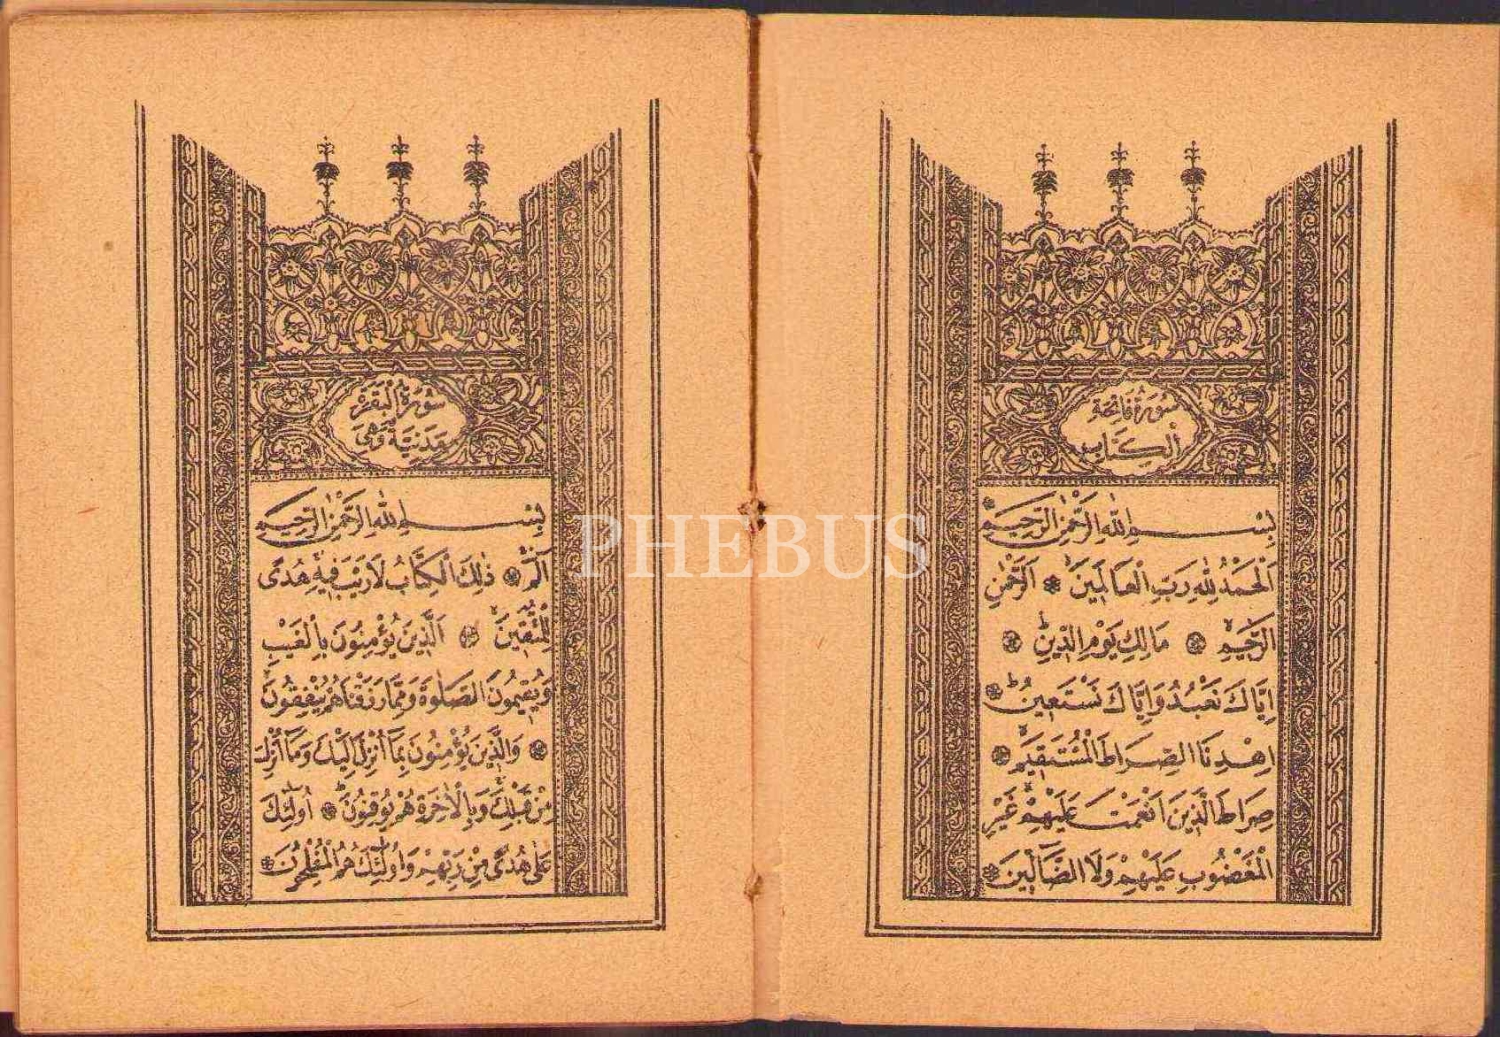 سُورَةُ فَاتِحَةِ
الْكِتَابِ
بِسْمِ اللّٰهِ الرَّحْمٰنِ الرَّحِيمِ
اَلْحَمْدُ لِلّٰهِ رَبِّ الْعَالَمِينَ ۞ اَلرَّحْمٰنِ
الرَّحِيمِ ۞ مَالِكِ يَوْمِ الدِّينِ ۞
اِيَّاكَ نَعْبُدُ وَاِيَّاكَ نَسْتَعِينُ ۞
اِهْدِنَا الصِّرَاطَ الْمُسْتَقِيمَ ۞
صِرَاطَ الَّذِينَ اَنْعَمْتَ عَلَيْهِمْ غَيْرِ
الْمَغْضُوبِ عَلَيْهِمْ وَلَا الضَّالِّينَ ۞
سُورَةُ الْبَقَرَةِ
مَدَنِيَّةٌ وَهِىَ
بِسْمِ اللّٰهِ الرَّحْمٰنِ الرَّحِيمِ
الٓمٓ ۞ ذٰلِكَ الْكِتَابُ لَا رَيْبَ فِيهِ هُدًى
لِلْمُتَّقِينَ ۞ اَلَّذِينَ يُؤْمِنُونَ بِالْغَيْبِ
وَيُقِيمُونَ الصَّلٰوةَ وَمِمَّا رَزَقْنَاهُمْ يُنْفِقُونَ
۞ وَالَّذِينَ يُؤْمِنُونَ بِمَا اُنْزِلَ اِلَيْكَ وَمَا اُنْزِلَ
مِنْ قَبْلِكَ وَبِالْاٰخِرَةِ هُمْ يُوقِنُونَ ۞ اُولٰئِكَ
عَلٰى هُدًى مِنْ رَبِّهِمْ وَاُولٰئِكَ هُمُ الْمُفْلِحُونَ ۞
PHEBUS